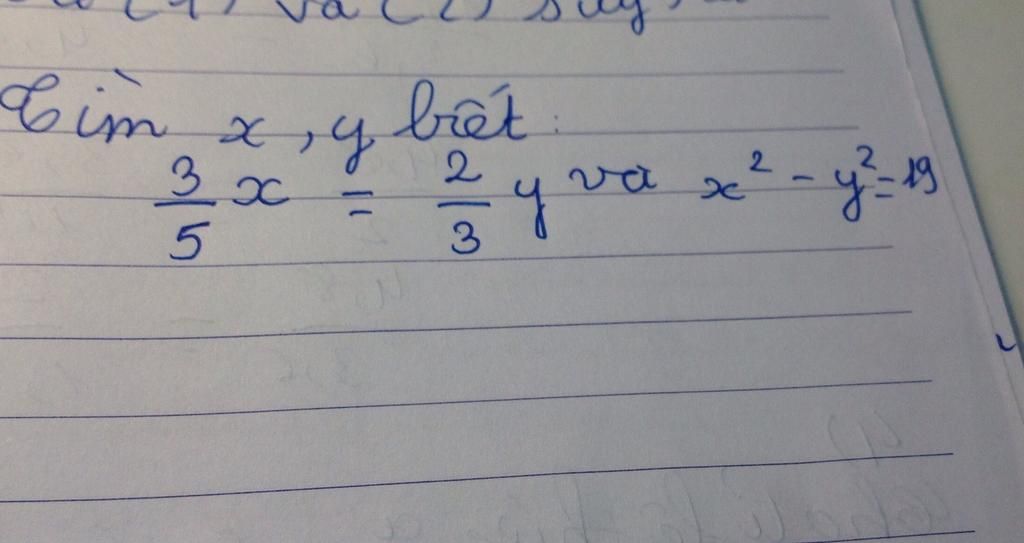 và (2) suy
Tìm x, y biết:
3/5 x = 2/3 y và x² - y² = 19